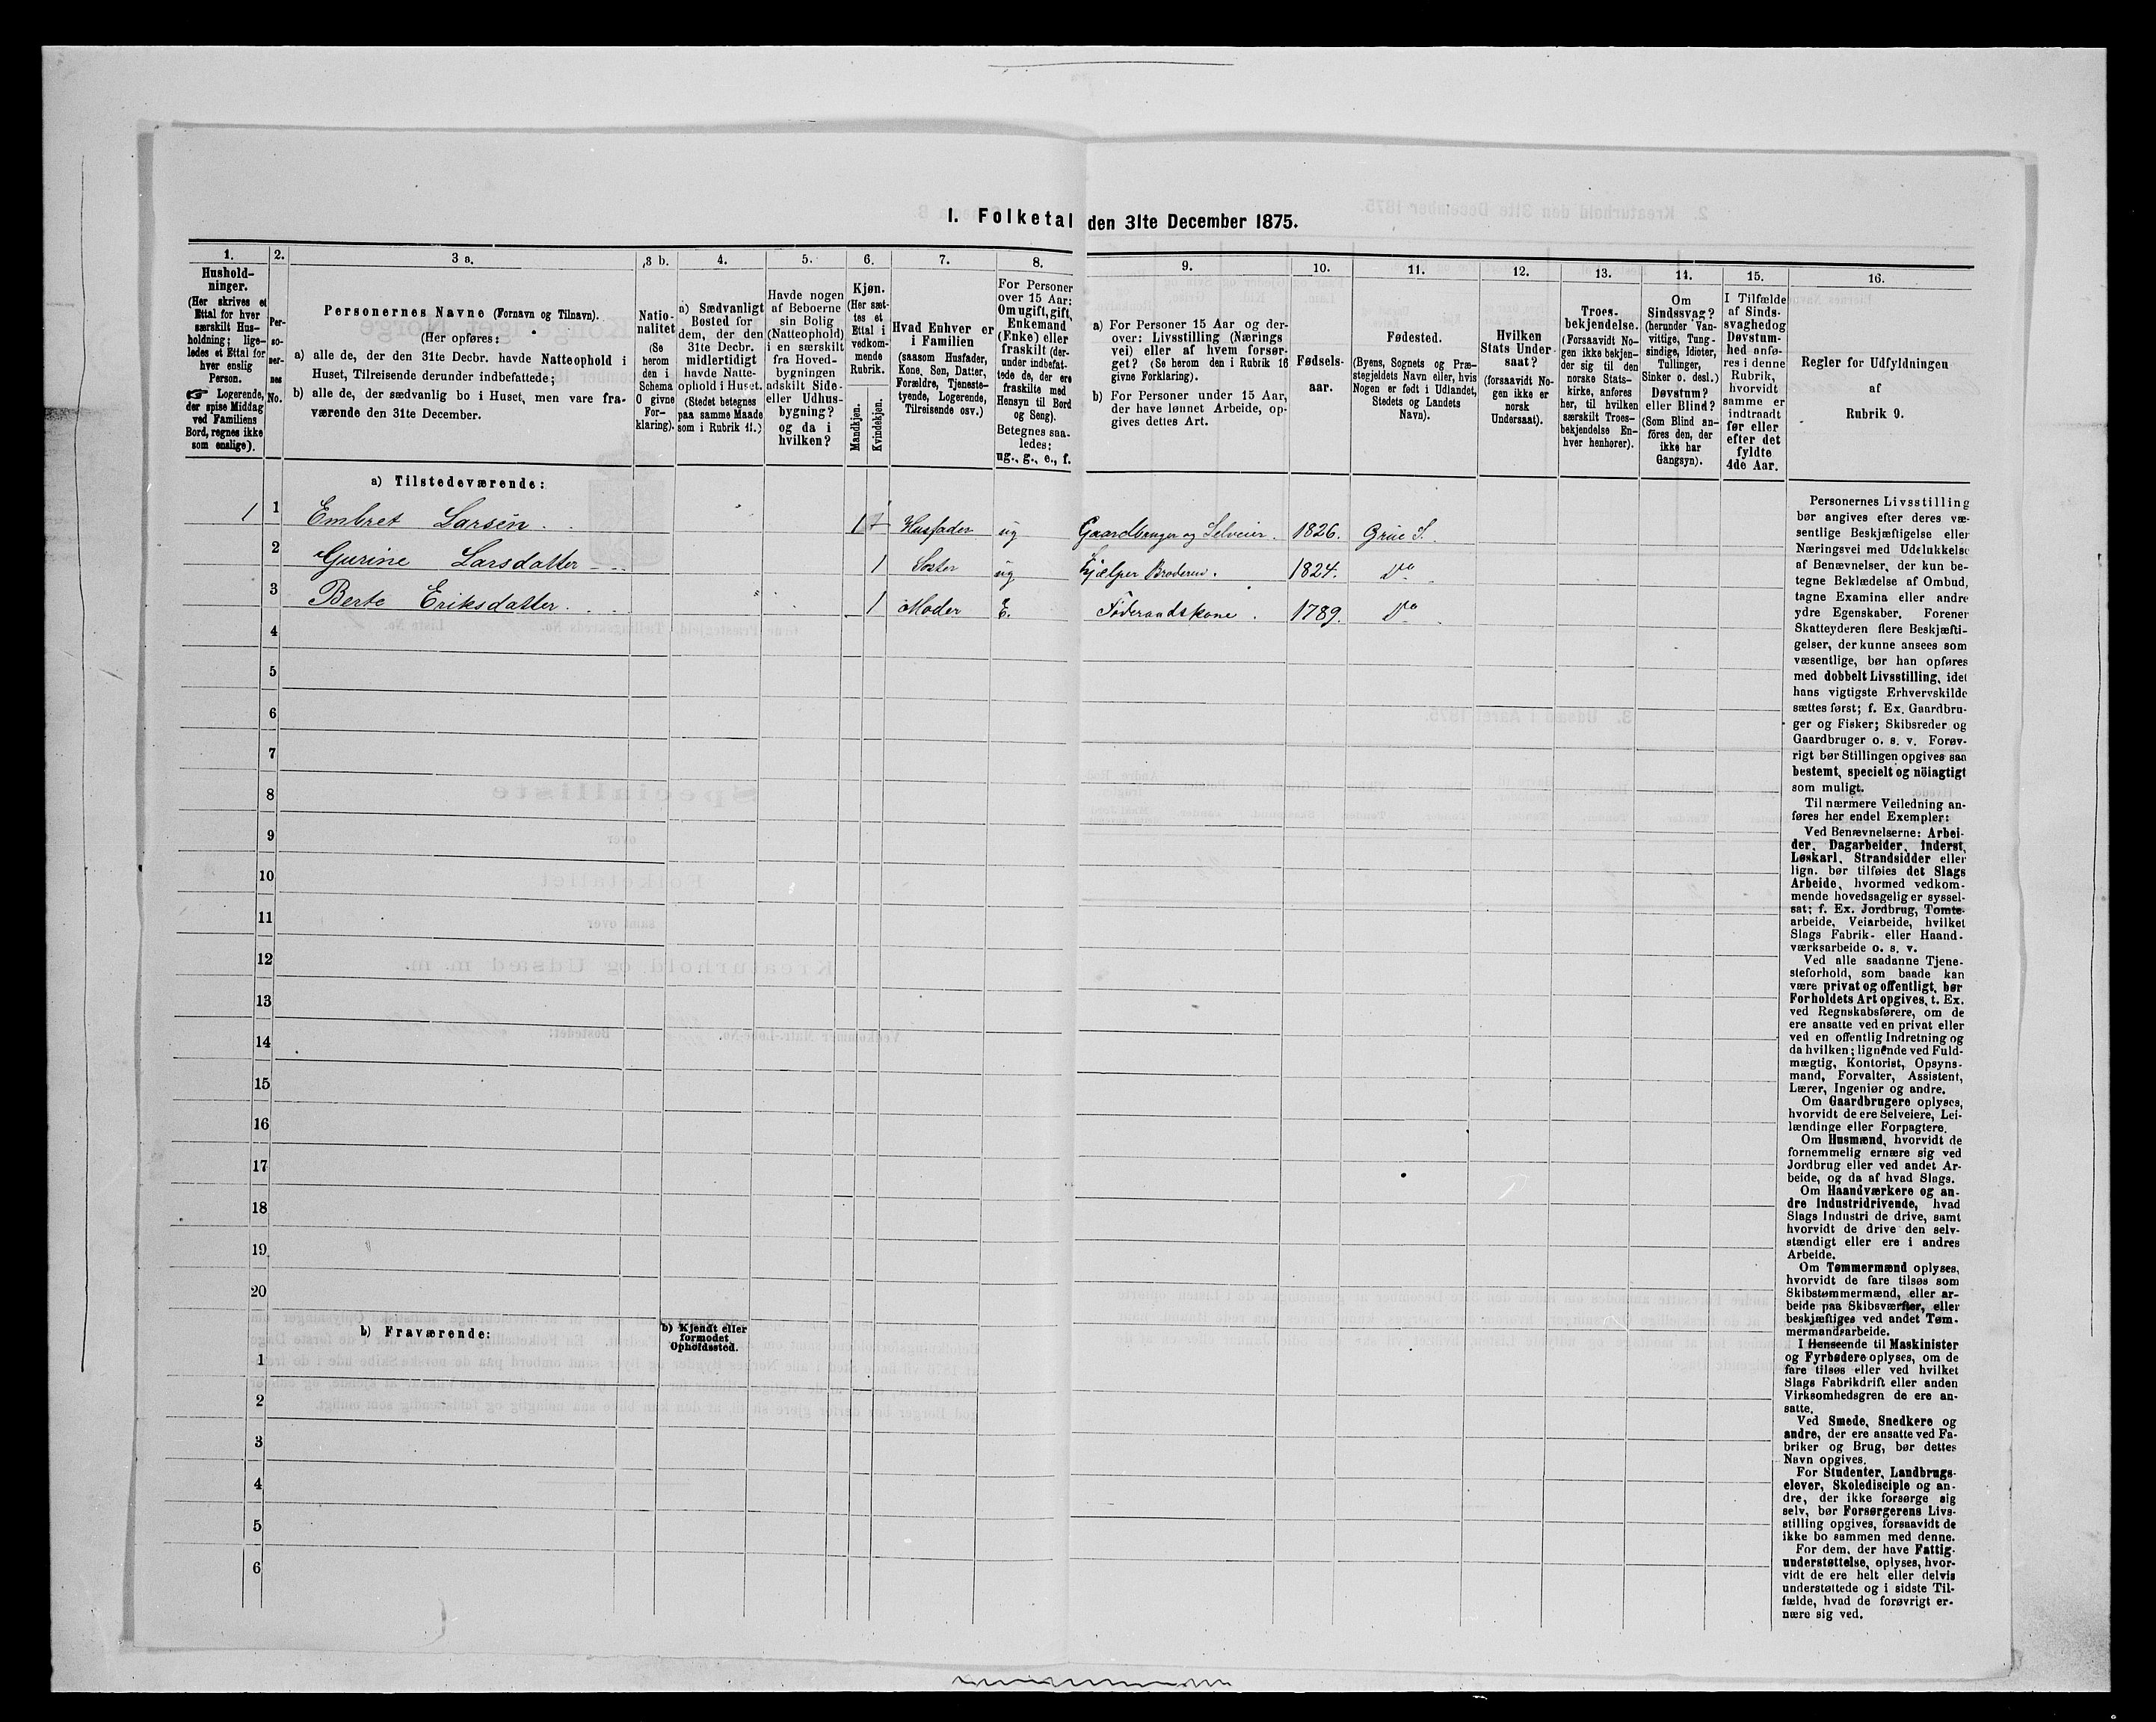 I. Folketal den 31te December 1875.
1. 2. 3 a. 3 b. 4. 5. 6. 7. 8. 9. 10. 11. 12. 13. 14. 15. 16.
Hushold-
ninger.
(Her skrives et
Ettal for hver
særskilt Hus-
holdning; lige-
ledes et Ettal for
hver enslig
Person.
☞ Logerende,
der spise Middag
ved Familiens
Bord, regnes ikke
som enslige).
Per-
so-
ner-
nes
No.
Personernes Navne (Fornavn og Tilnavn).
(Her opføres:
a) alle de, der den 31te Decbr. havde Natteophold i
Huset, Tilreisende derunder indbefattede;
b) alle de, der sædvanlig bo i Huset, men vare fra-
værende den 31te December.
Natio-
nalitet
(Se
herom
den i
Schema
O givne
For-
klaring).
a) Sædvanligt
Bosted for
dem, der den
31te Decbr.
midlertidigt
havde Natte-
ophold i Huset.
(Stedet betegnes
paa samme Maade
som i Rubrik 11.)
Havde nogen
af Beboerne
sin Bolig
(Natteophold)
i en særskilt
fra Hoved-
bygningen
adskilt Side-
eller Udhus-
bygning?
og da i
hvilken?
Kjøn.
(Her sæt-
tes et
Ettal i
vedkom-
mende
Rubrik.
Mandkjøn.
Kvindekjøn.
Hvad Enhver er
i Familien
(saasom Husfader,
Kone, Søn, Datter,
Forældre, Tjeneste-
tyende, Logerende,
Tilreisende osv.)
For Personer
over 15 Aar:
Om ugift, gift,
Enkemand
(Enke) eller
fraskilt (der-
under indbefat-
tede de, der ere
fraskilte med
Hensyn til Bord
og Seng).
Betegnes saa-
ledes:
ug., g., e., f.
a) For Personer 15 Aar og der-
over: Livsstilling (Nærings
vei) eller af hvem forsør-
get? (Se herom den i Rubrik 16
givne Forklaring).
b) For Personer under 15 Aar,
der have lønnet Arbeide, op-
gives dettes Art.
Fødsels-
aar.
Fødested.
(Byens, Sognets og Præ-
stegjeldets Navn eller, hvis
Nogen er født i Udlandet,
Stedets og Landets
Navn).
Hvilken
Stats Under-
saat?
(forsaavidt No-
gen ikke er
norsk
Undersaat).
Troes-
bekjendelse.
(Forsaavidt No-
gen ikke bekjen-
der sig til den
norske Stats-
kirke, anføres
her, til hvilken
særskilt Troes-
bekjendelse En-
hver henhører).
Om
Sindssvag?
(herunder Van-
vittige, Tung-
sindige, Idioter,
Tullinger,
Sinker o. desl.)
Døvstum?
eller Blind?
(Som Blind an-
føres den, der
ikke har
Gangsyn).
I Tilfælde
af Sinds-
svaghedog
Døvstum-
hed anfø-
res i denne
Rubrik,
hvorvidt
samme er
indtraadt
før eller
efter det
fyldte
4de Aar.
Regler for Udfyldningen
af
Rubrik 9.
a) Tilstedeværende:
1 1 Embret Larsen. 1 Husfader ug Gaardbruger og Selveier. 1826. Grue S.
2 Gurine Larsdatter 1 Søster ug Hjælper Broderen. 1824. Do
3 Berte Eriksdatter. 1 Moder E. Føderaadskone. 1789. Do
4
5
6
7
8
9
10
11
12
13
14
15
16
17
18
19
20
b) Fraværende:
b) Kjendt eller
formodet
Opholdssted.
1
2
3
4
5
6
Personernes Livsstilling
bør angives efter deres væ-
sentlige Beskjæftigelse eller
Næringsvei med Udelukkelse
af Benævnelser, der kun be-
tegne Beklædelse af Ombud,
tagne Examina eller andre
ydre Egenskaber. Forener
Skatteyderen flere Beskjæfti-
gelser, der kunne ansees som
væsentlige, bør han opføres
med dobbelt Livsstilling, idet
hans vigtigste Erhvervskilde
sættes først; f. Ex. Gaardbru-
ger og Fisker; Skibsreder og
Gaardbruger o. s. v. Forøv-
rigt bør Stillingen opgives saa
bestemt, specielt og nöiagtigt
som muligt.
Til nærmere Veiledning an-
føres her endel Exempler:
Ved Benævnelserne: Arbei-
der, Dagarbeider, Inderst,
Løskarl, Strandsidder eller
lign. bør tilføies det Slags
Arbeide, hvormed vedkom-
mende hovedsagelig er syssel-
sat; f. Ex. Jordbrug, Tomte-
arbeide, Veiarbeide, hvilket
Slags Fabrik- eller Haand-
værksarbeide o. s. v.
Ved alle saadanne Tjene-
steforhold, som baade kan
være privat og offentligt, bør
Forholdets Art opgives, t. Ex.
ved Regnskabsførere, om de
ere ansatte ved en privat eller
ved en offentlig Indretning og
da hvilken; lignende ved Fuld-
mægtig, Kontorist, Opsyns-
mand, Forvalter, Assistent,
Lærer, Ingeniør og andre.
Om Gaardbrugere oplyses,
hvorvidt de ere Selveiere, Lei-
lændinge eller Forpagtere.
Om Husmænd, hvorvidt de
fornemmelig ernære sig ved
Jordbrug eller ved andet Ar-
beide, og da af hvad Slags.
Om Haandværkere og an-
dre Industridrivende, hvad
Slags Industri de drive, samt
hvorvidt de drive den selv-
stændigt eller ere i andres
Arbeide.
Om Tømmermænd oplyses,
hvorvidt de fare tilsøs som
Skibstømmermænd, eller ar-
beide paa Skibsværfter, eller
beskjæftiges ved andet Tøm-
mermandsarbeide.
I Henseende til Maskinister
og Fyrbødere oplyses, om de
fare tilsøs eller ved hvilket
Slags Fabrikdrift eller anden
Virksomhedsgren de ere an-
satte.
Ved Smede, Snedkere og
andre, der ere ansatte ved Fa-
briker og Brug, bør dettes
Navn opgives.
For Studenter, Landbrugs-
elever, Skoledisciple og an-
dre, der ikke forsørge sig
selv, bør Forsørgerens Livs-
stilling opgives, forsaavidt de
ikke bo sammen med denne.
For dem, der have Fattig-
understøttelse, oplyses, hvor-
vidt de ere helt eller delvis
understøttede og i sidste Til-
fælde, hvad de forøvrigt er-
nære sig ved.